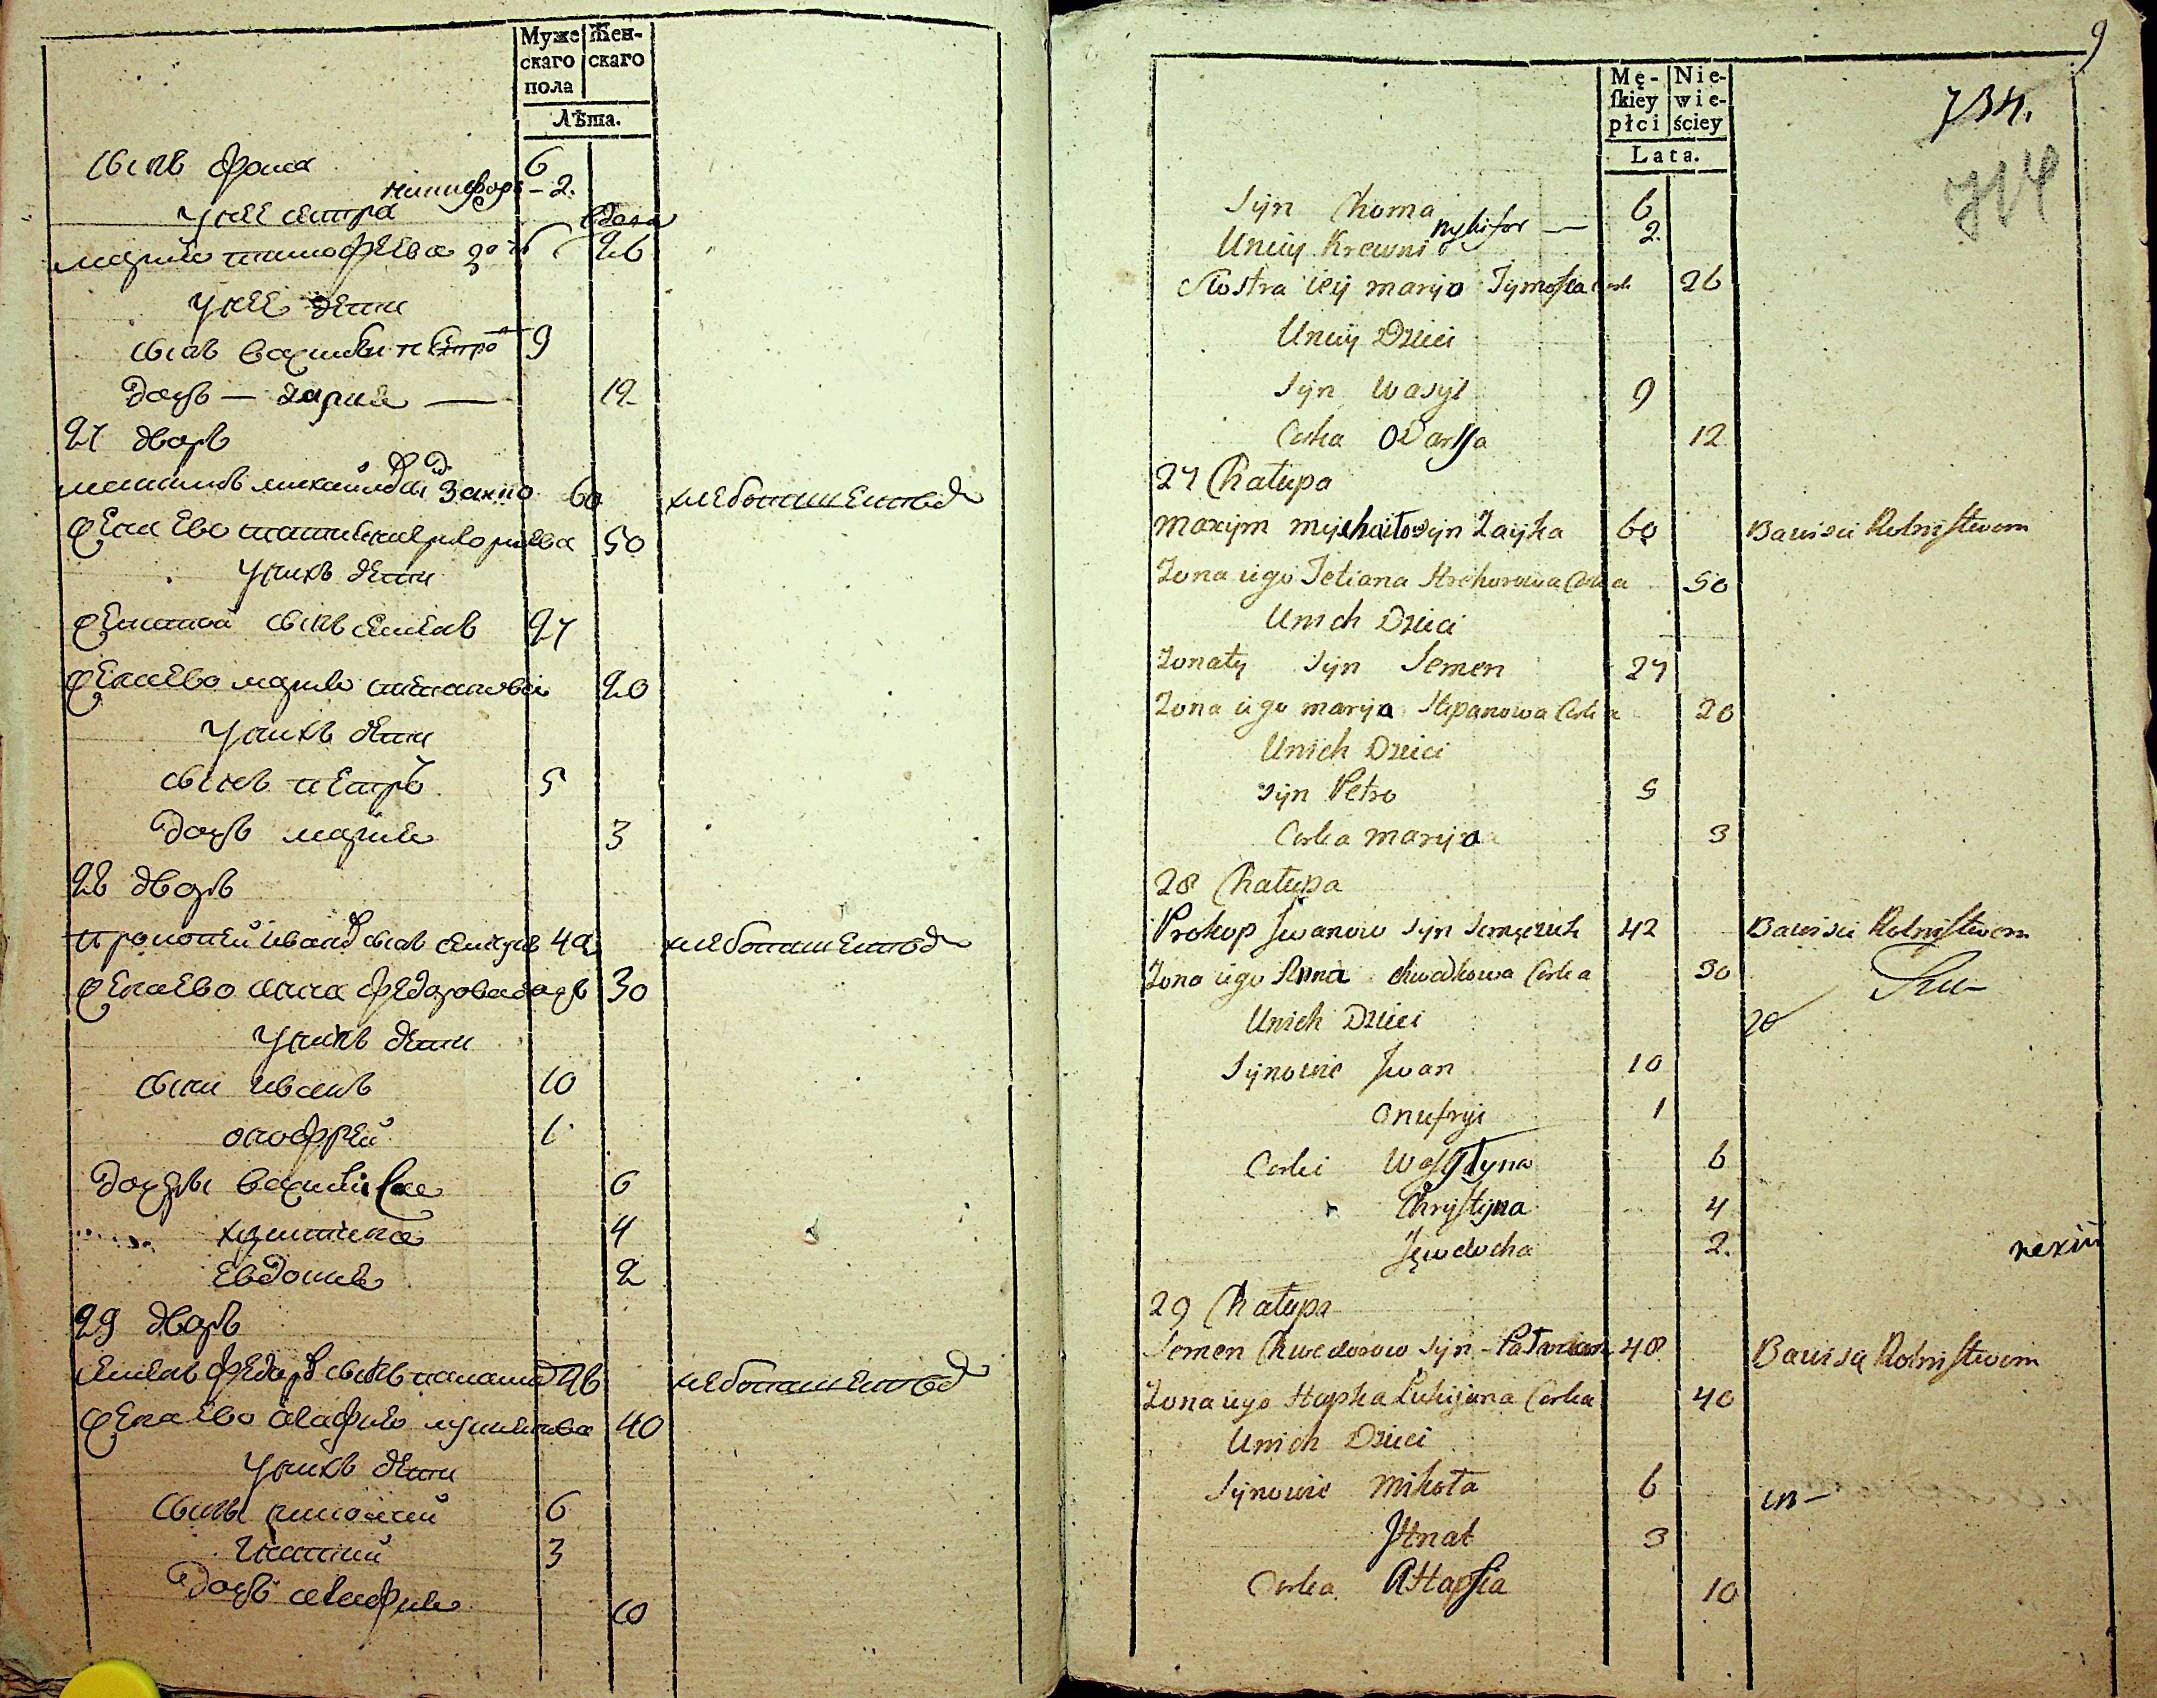 Муже
скаго
пола
Жен-
скаго
Лѣта.
сынъ фома 6
никифоръ – 2.
у нее сестра вдова
мария тимофеева 26
у нее дети
сынъ василей 9
дочь — дария — 12
27 дворъ
максимъ михайловъ заико 60 хлебопашествъ
жена ево татияна григориева 50
у нихъ дети
женатой сынъ семенъ 27
жена ево мария степанова 20
у нихъ дети
сынъ петръ 5
дочь мария 3
28 дворъ
прокопей ивановъ сынъ 42 хлебопашествъ
жена ево анна федорова дочь 30
у нихъ дети
сыны иванъ 10
онофрей 1
дочери василиса 6
христина 4
евдокия 2
29 дворъ
семенъ федоровъ сынъ 48 хлебопашествъ
жена ево агафия 40
у нихъ дети
сыны николай 6
игнатий 3
дочь агафия 10
9
Mę-
ſkiey
płci
Nie-
wie-
ściey
Lata.
734.
714
Syn Choma 6
nykifor — 2.
Unieij Krewni
Siostra ieij maryja Tymosza Cork 26
Unieij Dzieci
Syn Wasyl 9
Corka Odarſſa 12
27 Chałupa
maxijm mijchaiłow syn Zayka 60 Bawi sie Rolniſtwem
Zona iego Tetiana Hrehorowa Corka 50
Unich Dzieci
Zonatij Syn Semen 27
Zona iego maryja Stepanowa Corka 20
Unich Dzieci
Syn Petro 5
Corka maryja 3
28 Chałupa
Prokop Jwanow Syn 42 Bawi sie Rolniſtwem
Zona iego Anna Corka 30
Unich Dzieci 20
Synowie Jwan 10
Onufryi 1
Corki Waſylyna 6
Chryſtyna 4
Jewdocha 2.
29 Chałupa
Semen Chwedorow Syn 48 Bawi się Rolniſtwem
Zona iego Hapka Lukijana Corka 40
Unich Dzieci
Synowie Mikoła 6
Jhnat 3
Corka AHapſia 10